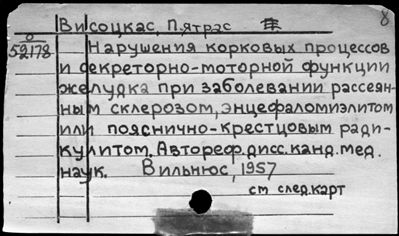 8
Висоцкас, Пятрас
52178 Нарушения корковых процессов
и секреторно-моторной функции
желудка при заболевании рассеян-
ным склерозом, энцефаломиэлитом
или пояснично-крестцовым ради-
кулитом. Автореф. дисс. канд. мед.
наук. Вильнюс, 1957
см след. карт